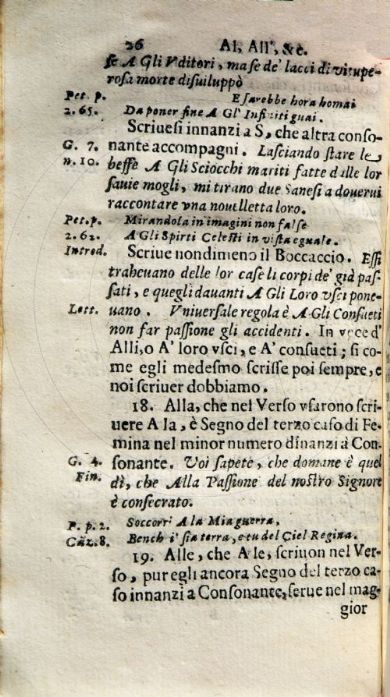 26 Al, All', &c.
ſe A Gli Vditori, ma ſe de' lacci di vitupe-
roſa morte diſuiluppò
Pet. p. E ſarebbe hora homai
2. 65. Da poner fine A Gl' Infiniti guai.
Scriueſi innanzi a S, che altra conſo-
G. 7. nante accompagni. Laſciando ſtare le
n. 10. beffe A Gli Sciocchi mariti fatte dalle lor
ſauie mogli, mi tirano due Saneſi a douerui
raccontare vna nouelletta loro.
Pet. p. Mirandola in imagini non falſe
2. 62. A Gli Spirti Celeſti in viſta eguale.
Introd. Scriue nondimeno il Boccaccio. Eſſi
traheuano delle lor caſe li corpi de' già paſ-
ſati, e quegli dauanti A Gli Loro vſci pone-
Lett. uano. Vniuerſale regola è A Gli Conſueti
non far paſſione gli accidenti. In vece d'
Alli, o A' loro vſci, e A' conſueti; ſi co-
me egli medeſmo ſcriſſe poi ſempre, e
noi ſcriuer dobbiamo.
18. Alla, che nel Verſo vſarono ſcri-
uere A la, è Segno del terzo caſo di Fe-
mina nel minor numero dinanzi à Con-
G. 4. ſonante. Voi ſapete, che domane è quel
Fin. dì, che Alla Paſſione del noſtro Signore
è conſecrato.
P. p. 2. Soccorri A la Mia guerra,
Caz. 8. Bench' i' ſia terra, e tu del Ciel Regina.
19. Alle, che A le, ſcriuon nel Ver-
ſo, pur egli ancora Segno del terzo ca-
ſo innanzi a Conſonante, ſerue nel mag-
gior